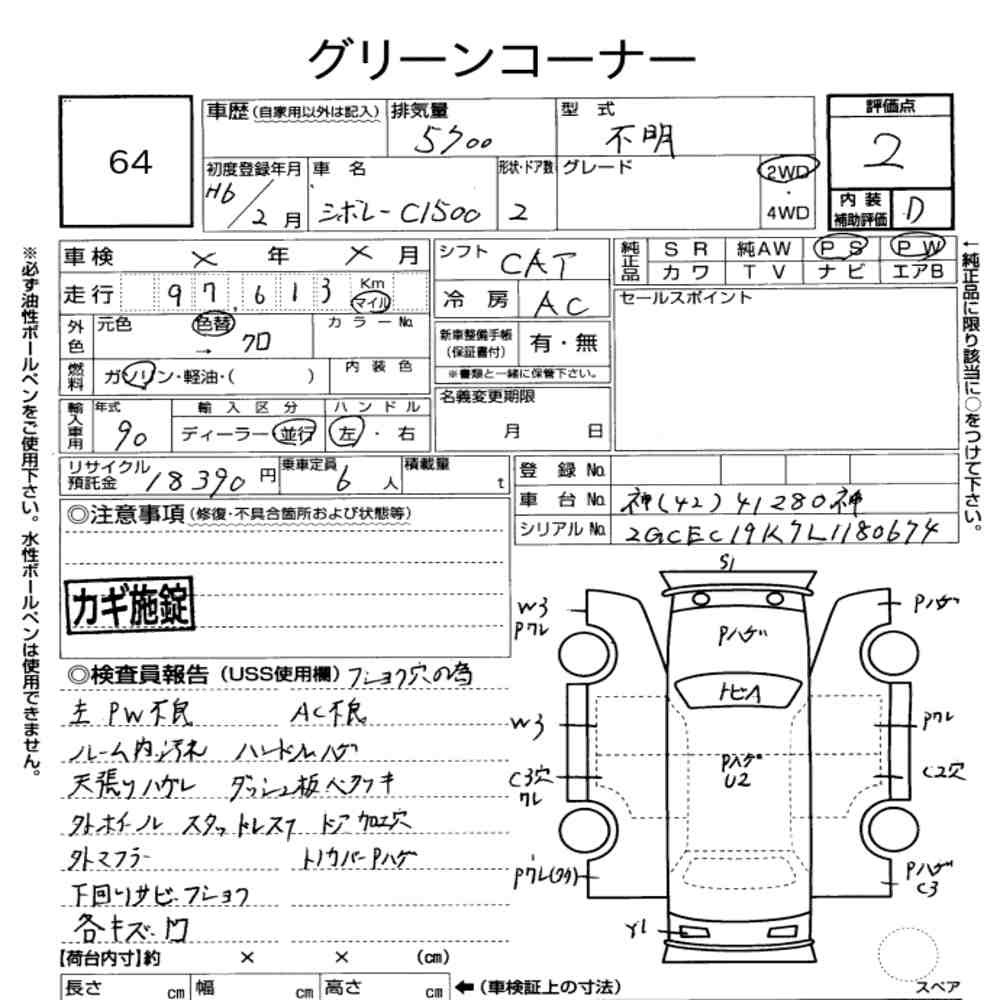 グリーンコーナー
64
車歴(自家用以外は記入)
排気量
5700
型 式
不明
評価点
2
初度登録年月
H6/2月
車 名
シボレーC1500
形状・ドア数
2
グレード
2WD
・
4WD
内 装
補助評価
D
※必ず油性ボールペンをご使用下さい。水性ボールペンは使用できません。
車検 × 年 × 月
シフト
CAT
純正品
SR 純AW PS PW
カワ TV ナビ エアB
←純正品に限り該当に○をつけて下さい。
走行 97,613 Km
マイル
冷 房
AC
セールスポイント
外色
元色 色替
→ クロ
カラーNo.
新車整備手帳
(保証書付)
有・無
※書類と一緒に保管下さい。
燃料
ガソリン・軽油・( )
内 装 色
名義変更期限
月 日
輸入車用
年式
90
輸 入 区 分
ディーラー・並行
ハ ン ド ル
左・右
リサイクル
預託金
18390円
乗車定員
6人
積載量
t
登 録 No.
車 台 No.
神(42)41280神
シリアル No.
2GCEC19K7L1180674
◎注意事項(修復・不具合箇所および状態等)
カギ施錠
◎検査員報告(USS使用欄)フショク穴の為
主 PW不良 AC不良
ルーム内汚れ ハンドルハゲ
天張りハガレ ダッシュ板ベタツキ
外ホイール スタッドレス7 ドア加工穴
外マフラー トノカバーPハゲ
下回りサビ.フショク
各キズ.凹
【荷台内寸】約 × × (cm)
長さ cm 幅 cm 高さ cm ←(車検証上の寸法)
S1
W3
Pワレ
Pハゲ
Pハゲ
トビA
W3
Pワレ
Pハゲ
U2
C3穴
ワレ
C2穴
Pハゲ
C3
Y1
スペア